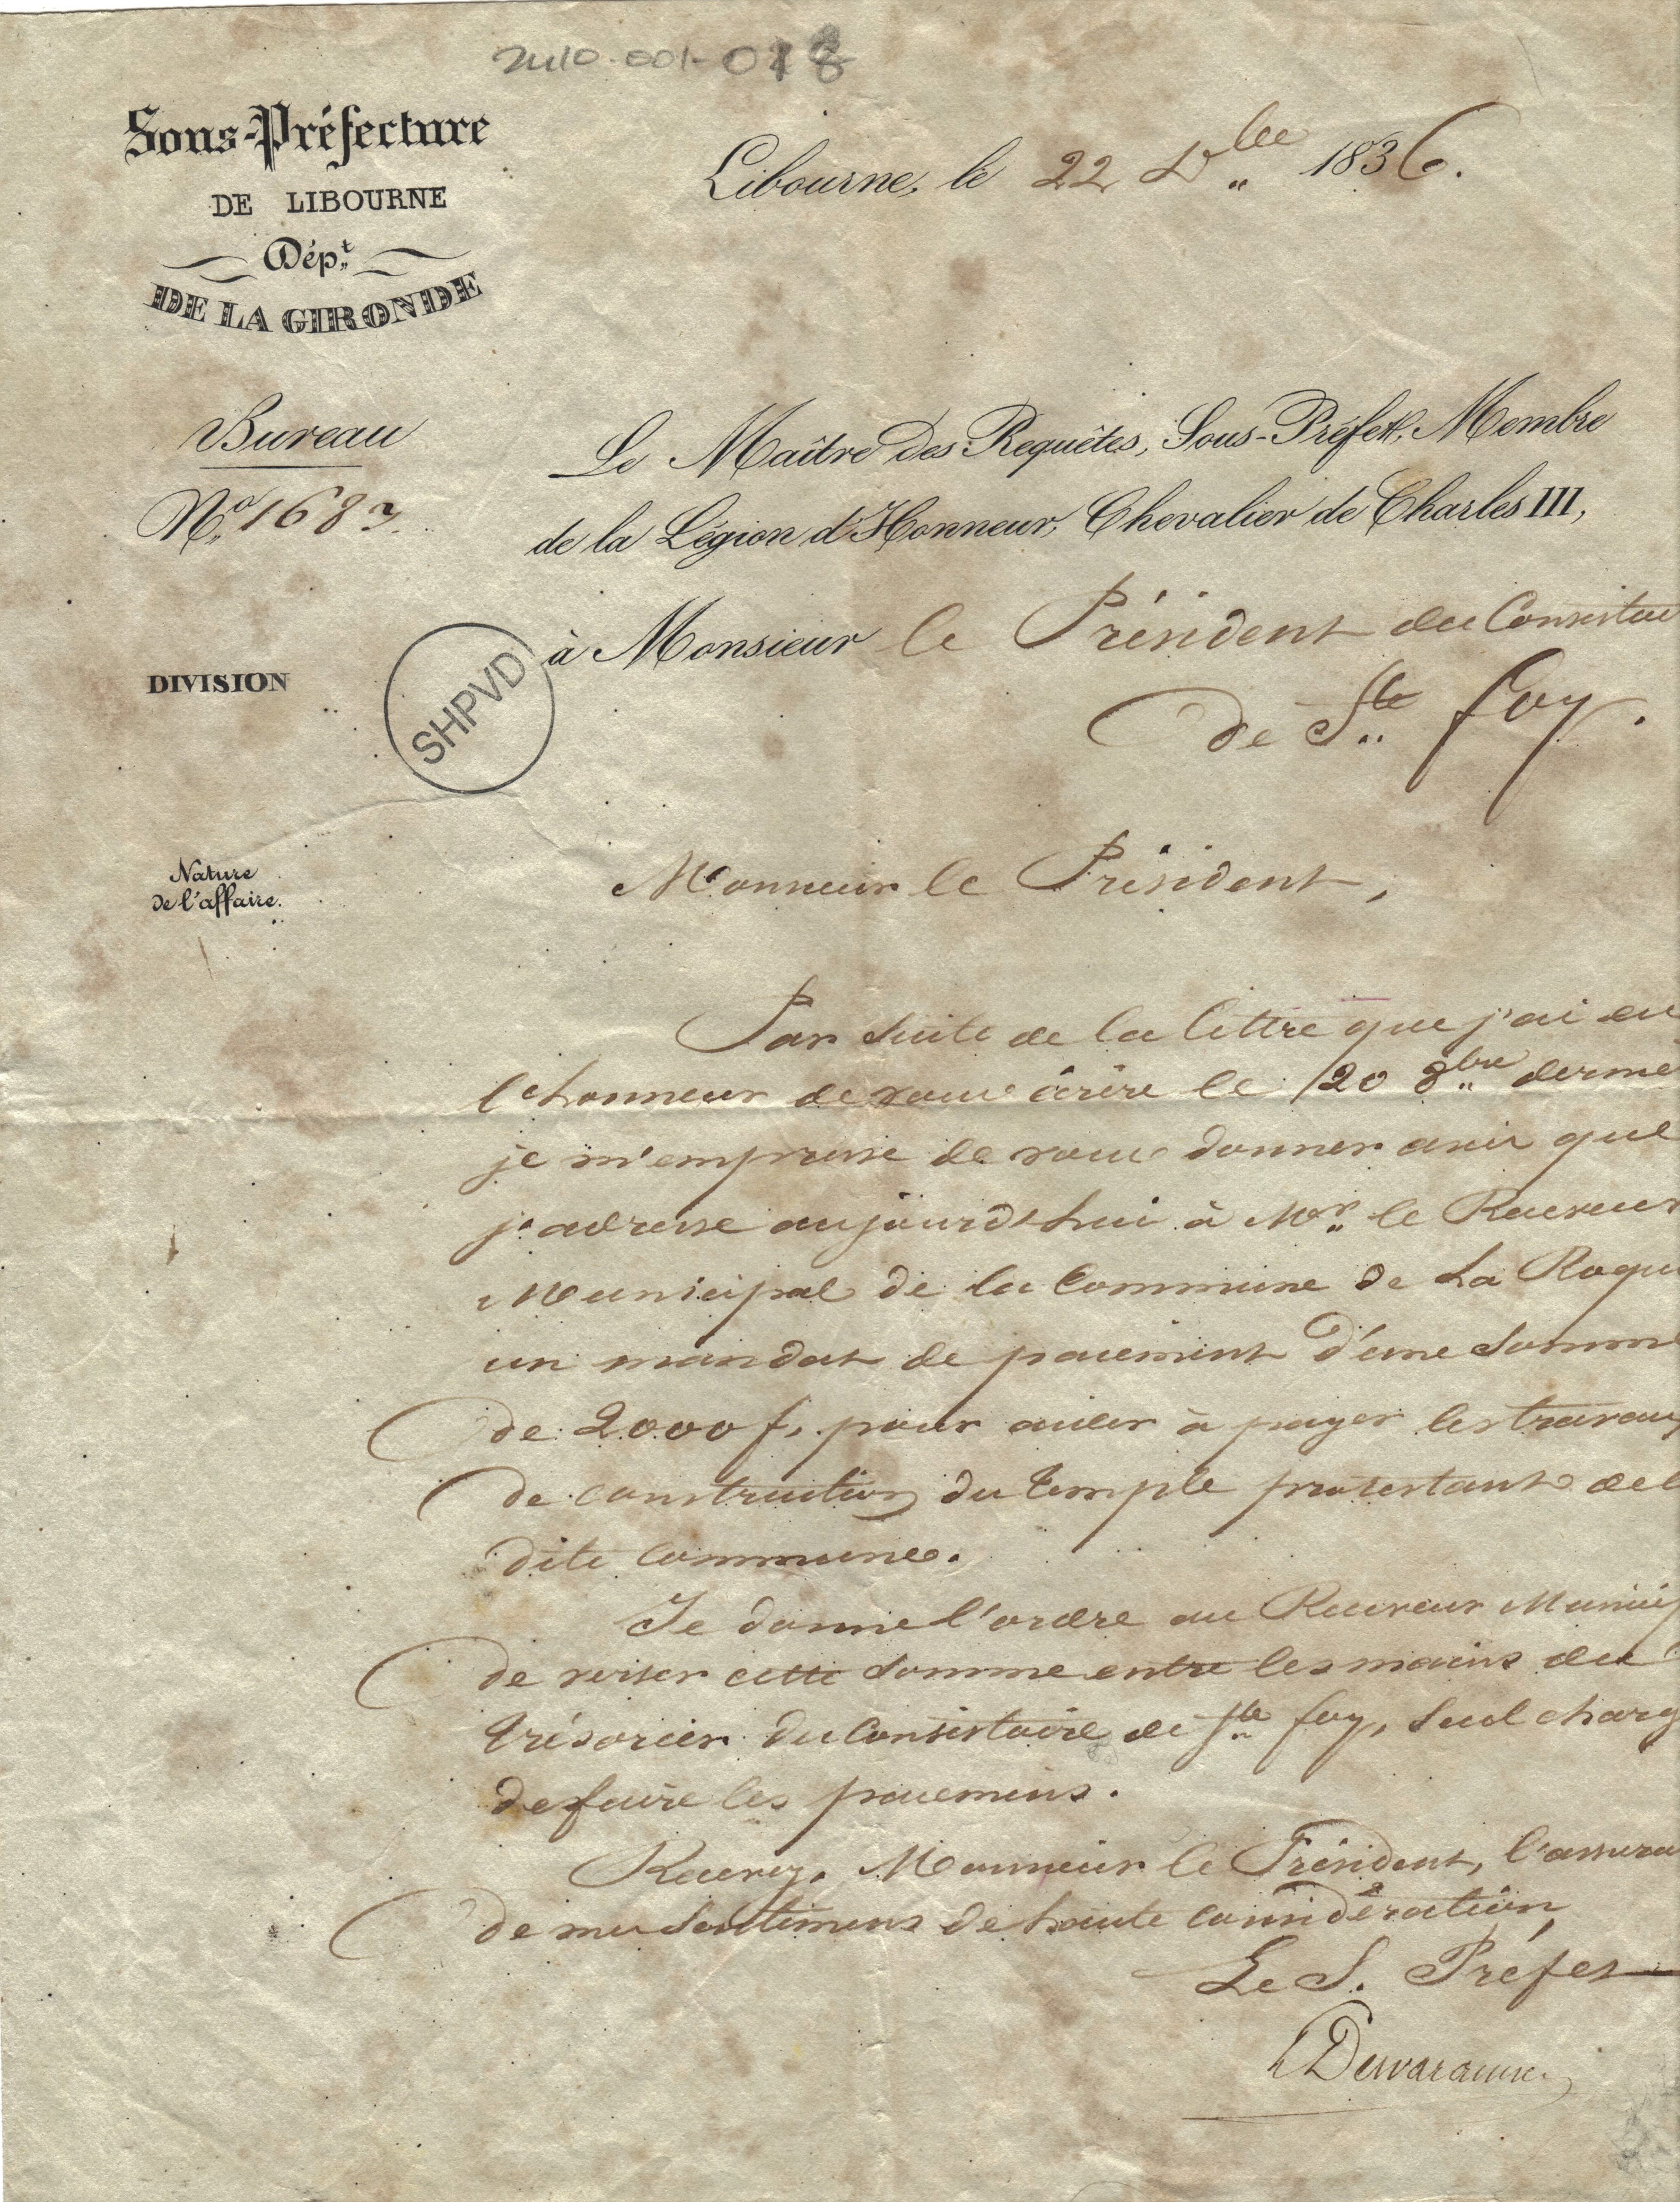 2410-001-018
Sous-Préfecture
DE LIBOURNE
Dép.t
DE LA GIRONDE
Libourne, le 22 Xbre 1836.
Bureau
N.o 1683
Le Maître des Requêtes, Sous-Préfet, Membre
de la Légion d'Honneur, Chevalier de Charles III,
à Monsieur le Président du Consistoire
de Ste foy.
DIVISION
SHPVD
Nature
de l'affaire.
Monsieur le Président,
Par suite de la lettre que j'ai eu
l'honneur de vous écrire le 20 8bre dernie
je m'empresse de vous donner avis que
j'adresse aujourd'hui à Mr. le Receveur
Municipal de la Commune de La Roqu
un mandat de paiement d'une somm
de 2000 f. pour aider à payer les travau
de construction du temple protestant de l
dite commune.
Je donne l'ordre au Receveur Municip
de verser cette somme entre les mains du
trésorier du Consistoire de Ste foy, seul charg
de faire les paiemens.
Recevez, Monsieur le Président, l'assura
de mes sentimens de haute considération,
Le S. Préfet